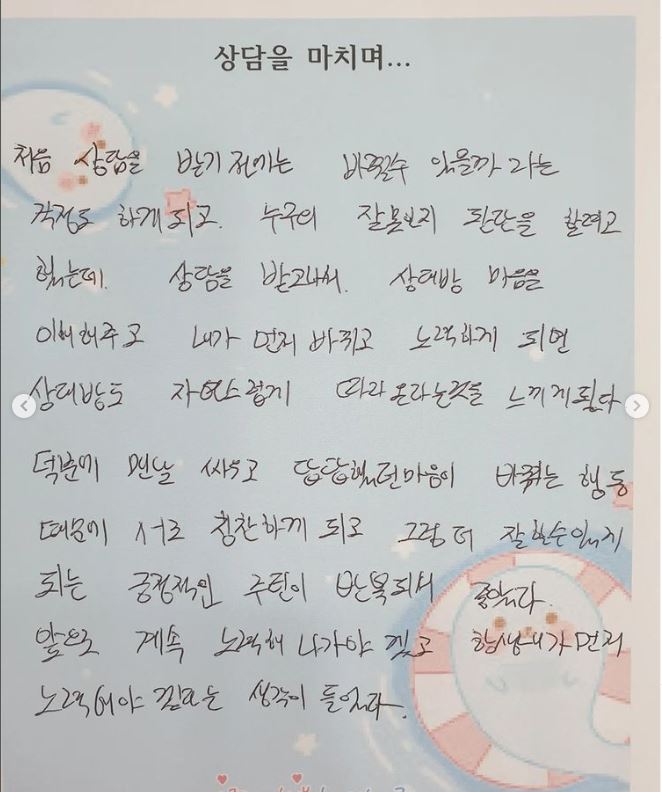 상담을 마치며...
처음 상담을 받기 전에는 바뀔수 있을까 라는
걱정도 하게 되고. 누구의 잘못인지 판단을 할려고
했는데. 상담을 받고나서. 상대방 마음을
이해해주고 내가 먼저 바뀌고 노력하게 되면
상대방도 자연스럽게 따라 온다는것을 느끼게 됬다
덕분에 맨날 싸우고 답답했던마음이 바뀌는 행동
때문에 서로 칭찬하게 되고 그럼 더 잘할수있게
되는 긍정적인 패턴이 반복되서 좋았다.
앞으로 계속 노력해 나가야 겠고 항상 내가 먼저
노력해야 겠다는 생각이 들었다.